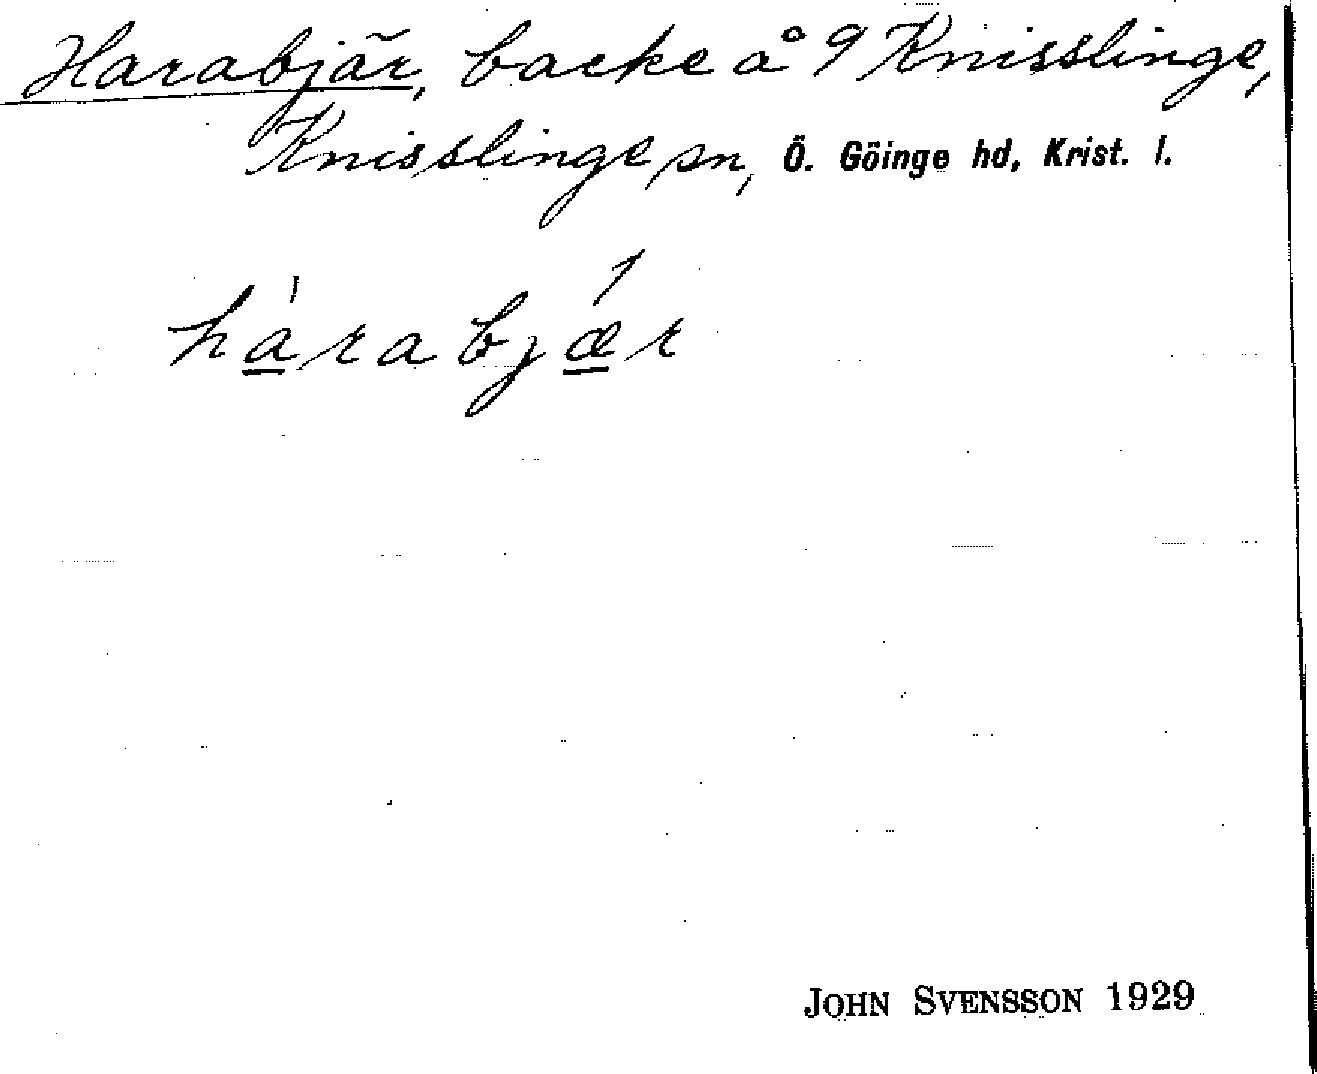 Harabjär, backe å 9 Knisslinge,
Knisslinge sn, Ö. Göinge hd, Krist. l.
ha̲̍rabjǽ̲r
JOHN SVENSSON 1929